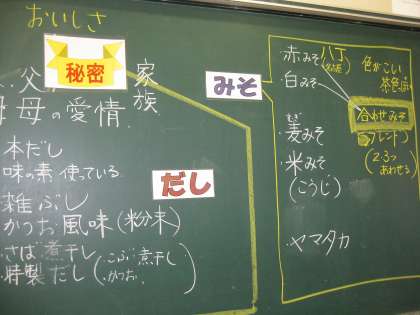 おいしさ
秘密
父
家族
母の愛情
本だし
味の素 使っている
雑ぶし
かつお風味(粉末)
さば煮干し
特製だし(こぶ 煮干し かつお)
だし
みそ
赤みそ(八丁
白みそ
麦みそ
米みそ
(こうじ)
ヤマタカ
色がこい
茶色っぽい
合わせみそ
ブレンド
(2・3つ
あわせる)